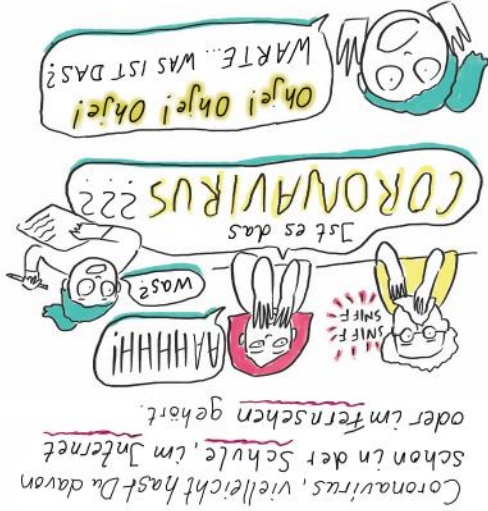 Coronavirus, vielleicht hast Du davon
schon in der Schule, im Internet
oder im Fernsehen gehört.
AAHHHHH!
SNIFF
SNIFF
Was?
Ist es das
CORONAVIRUS???
Ohje! Ohje! Ohje!
WARTE... WAS IST DAS?